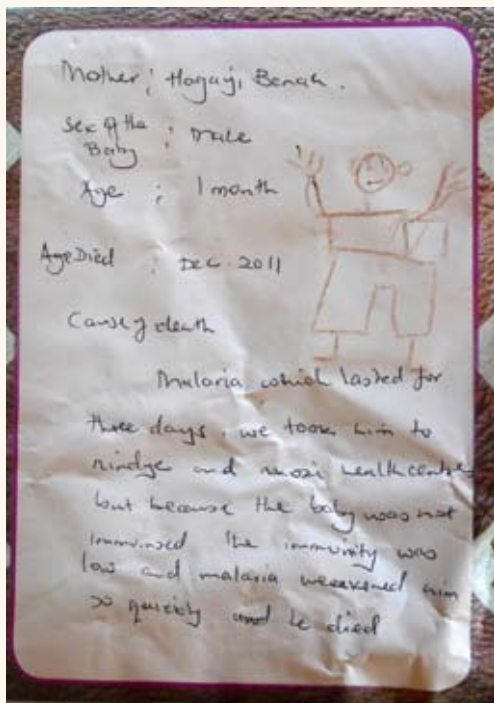 Mother ; Hogayi Benah.
Sex of the : male
Baby
Age ; 1 month
Age Died : DEC. 2011
Cause of death
Malaria which lasted for
three days. we took him to
and health centre
but because the baby was not
immunised the immunity was
low and malaria weakened him
so quickly and he died